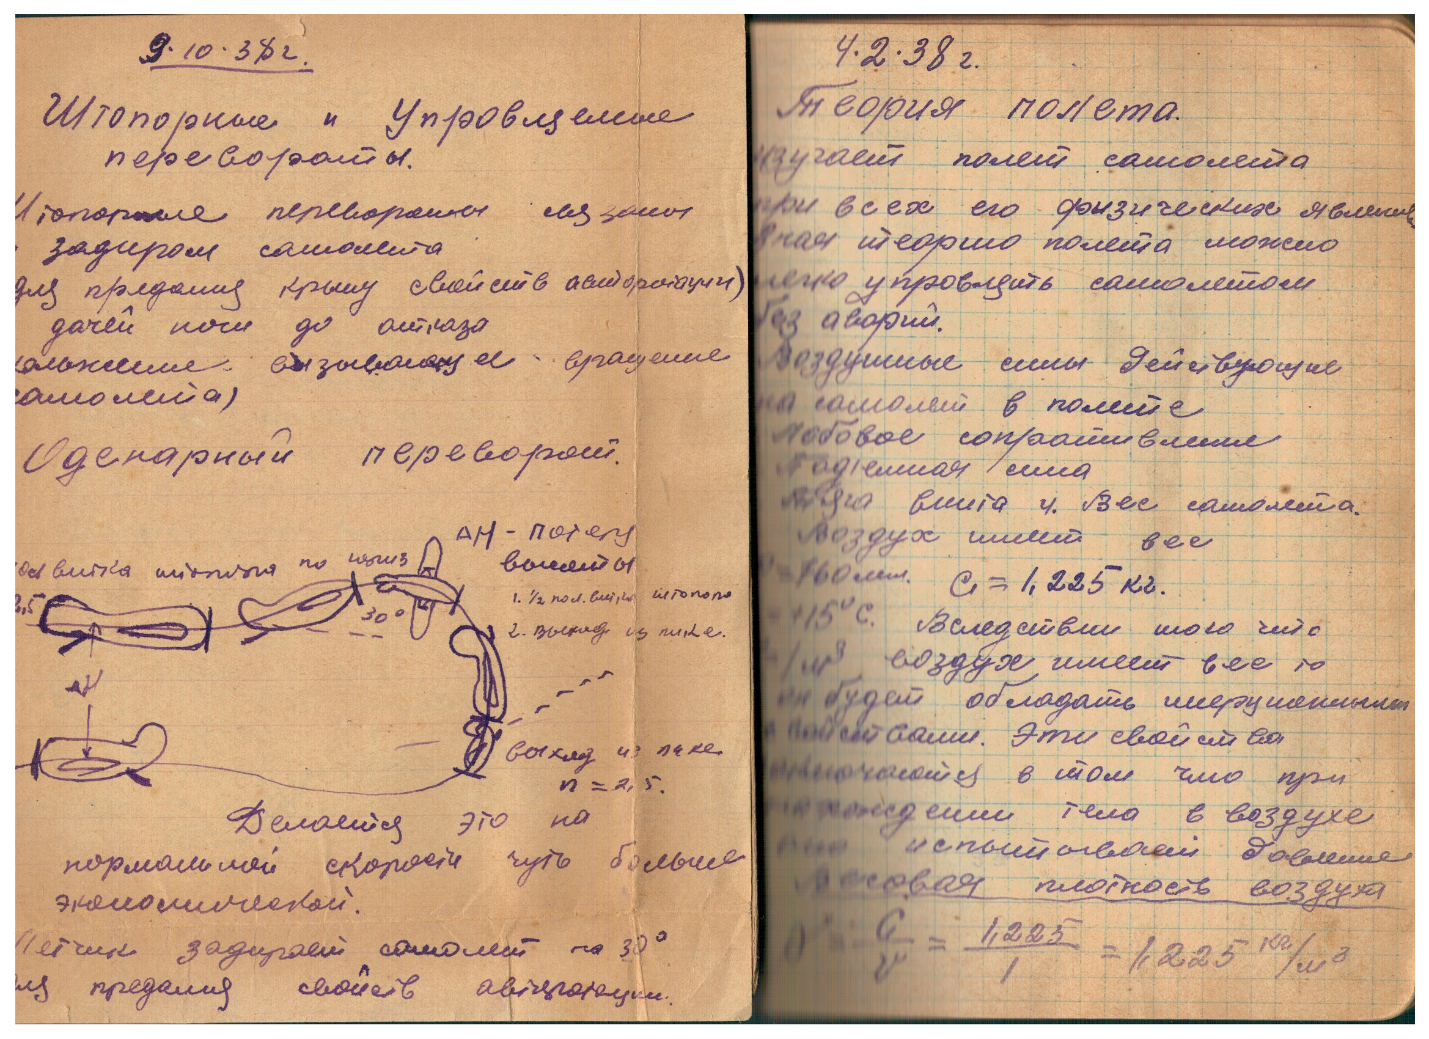 9.10.38г.
Штопорные и Управляемые
перевороты.
Штопорные перевороты связаны
задиром самолета
для придания крылу свойств авторотации)
дачей ноги до отказа
вызывающее вращение
самолета)
Оденарный переворот.
ΔН - Потеря
высоты
витка штопора по
1. 1/2 пол. витка штопора
2,5
30°
2. выход из пике.
ΔН
выход из пике
n = 2,5.
Делается это на
нормальной скорости чуть больше
экономической.
Летчик задирает самолет на 30°
для придания свойств авторотации.
4.2.38 г.
Теория полета.
изучает полет самолета
при всех его физических явлениях
Зная теорию полета можно
легко управлять самолетом
без аварий.
Воздушные силы действующие
на самолет в полете
Лобовое сопротивление
Подъемная сила
Тяга винта и. Вес самолета.
Воздух имеет вес
= 760мм. G = 1,225 кг.
+15°С. Вследствии того что
/м³ воздух имеет вес то
он будет обладать инерционными
свойствами. Эти свойства
заключаются в том что при
нахождении тела в воздухе
оно испытывает давление
Весовая плотность воздуха
= G/v = 1,225/1 = 1,225 кг/м³